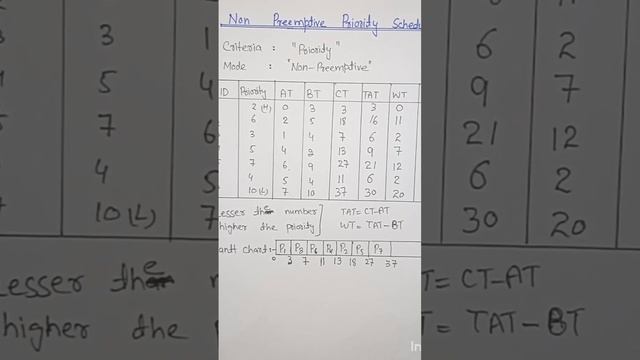 Non Preemptive Priority Sched
Criteria : "Priority"
Mode : "Non-Preemptive"
ID Priority AT BT CT TAT WT
2(H) 0 3 3 3 0
6 2 5 18 16 11
3 1 4 7 6 2
5 4 2 13 9 7
7 6 9 27 21 12
4 5 4 11 6 2
10(L) 7 10 37 30 20
esser the number TAT=CT-AT
higher the priority WT = TAT-BT
antt chart:- P1 P3 P6 P4 P2 P5 P7
0 3 7 11 13 18 27 37
3 1
5 4
7 6
4 5
10(L) 7
esser the
higher the
6 2
9 7
21 12
6 2
30 20
T= CT-AT
= TAT-BT